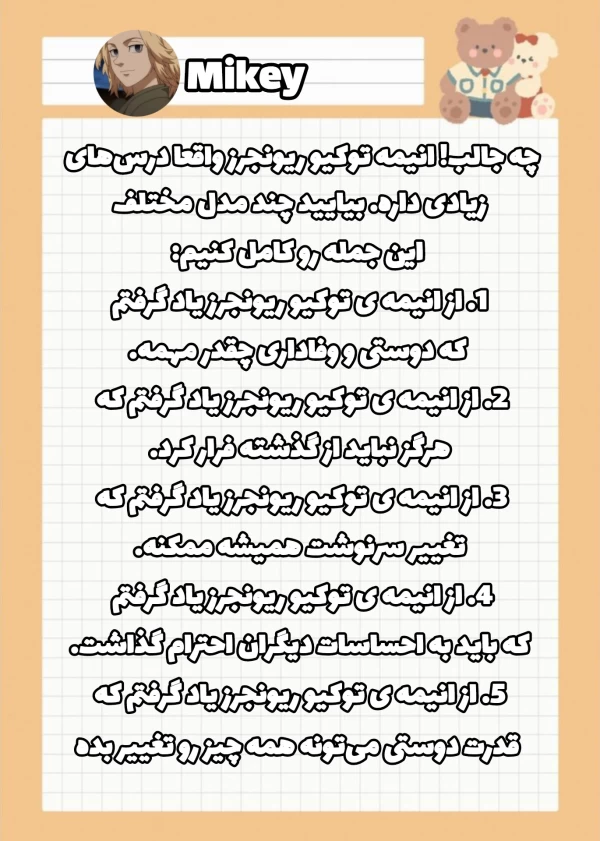 Mikey
چه جالب! انیمه توکیو ریونجرز واقعا درس‌های
زیادی داره. بیایید چند مدل مختلف
این جمله رو کامل کنیم:
1. از انیمه ی توکیو ریونجرز یاد گرفتم
که دوستی و وفاداری چقدر مهمه.
2. از انیمه ی توکیو ریونجرز یاد گرفتم که
هرگز نباید از گذشته فرار کرد.
3. از انیمه ی توکیو ریونجرز یاد گرفتم که
تغییر سرنوشت همیشه ممکنه.
4. از انیمه ی توکیو ریونجرز یاد گرفتم
که باید به احساسات دیگران احترام گذاشت.
5. از انیمه ی توکیو ریونجرز یاد گرفتم که
قدرت دوستی می‌تونه همه چیز رو تغییر بده